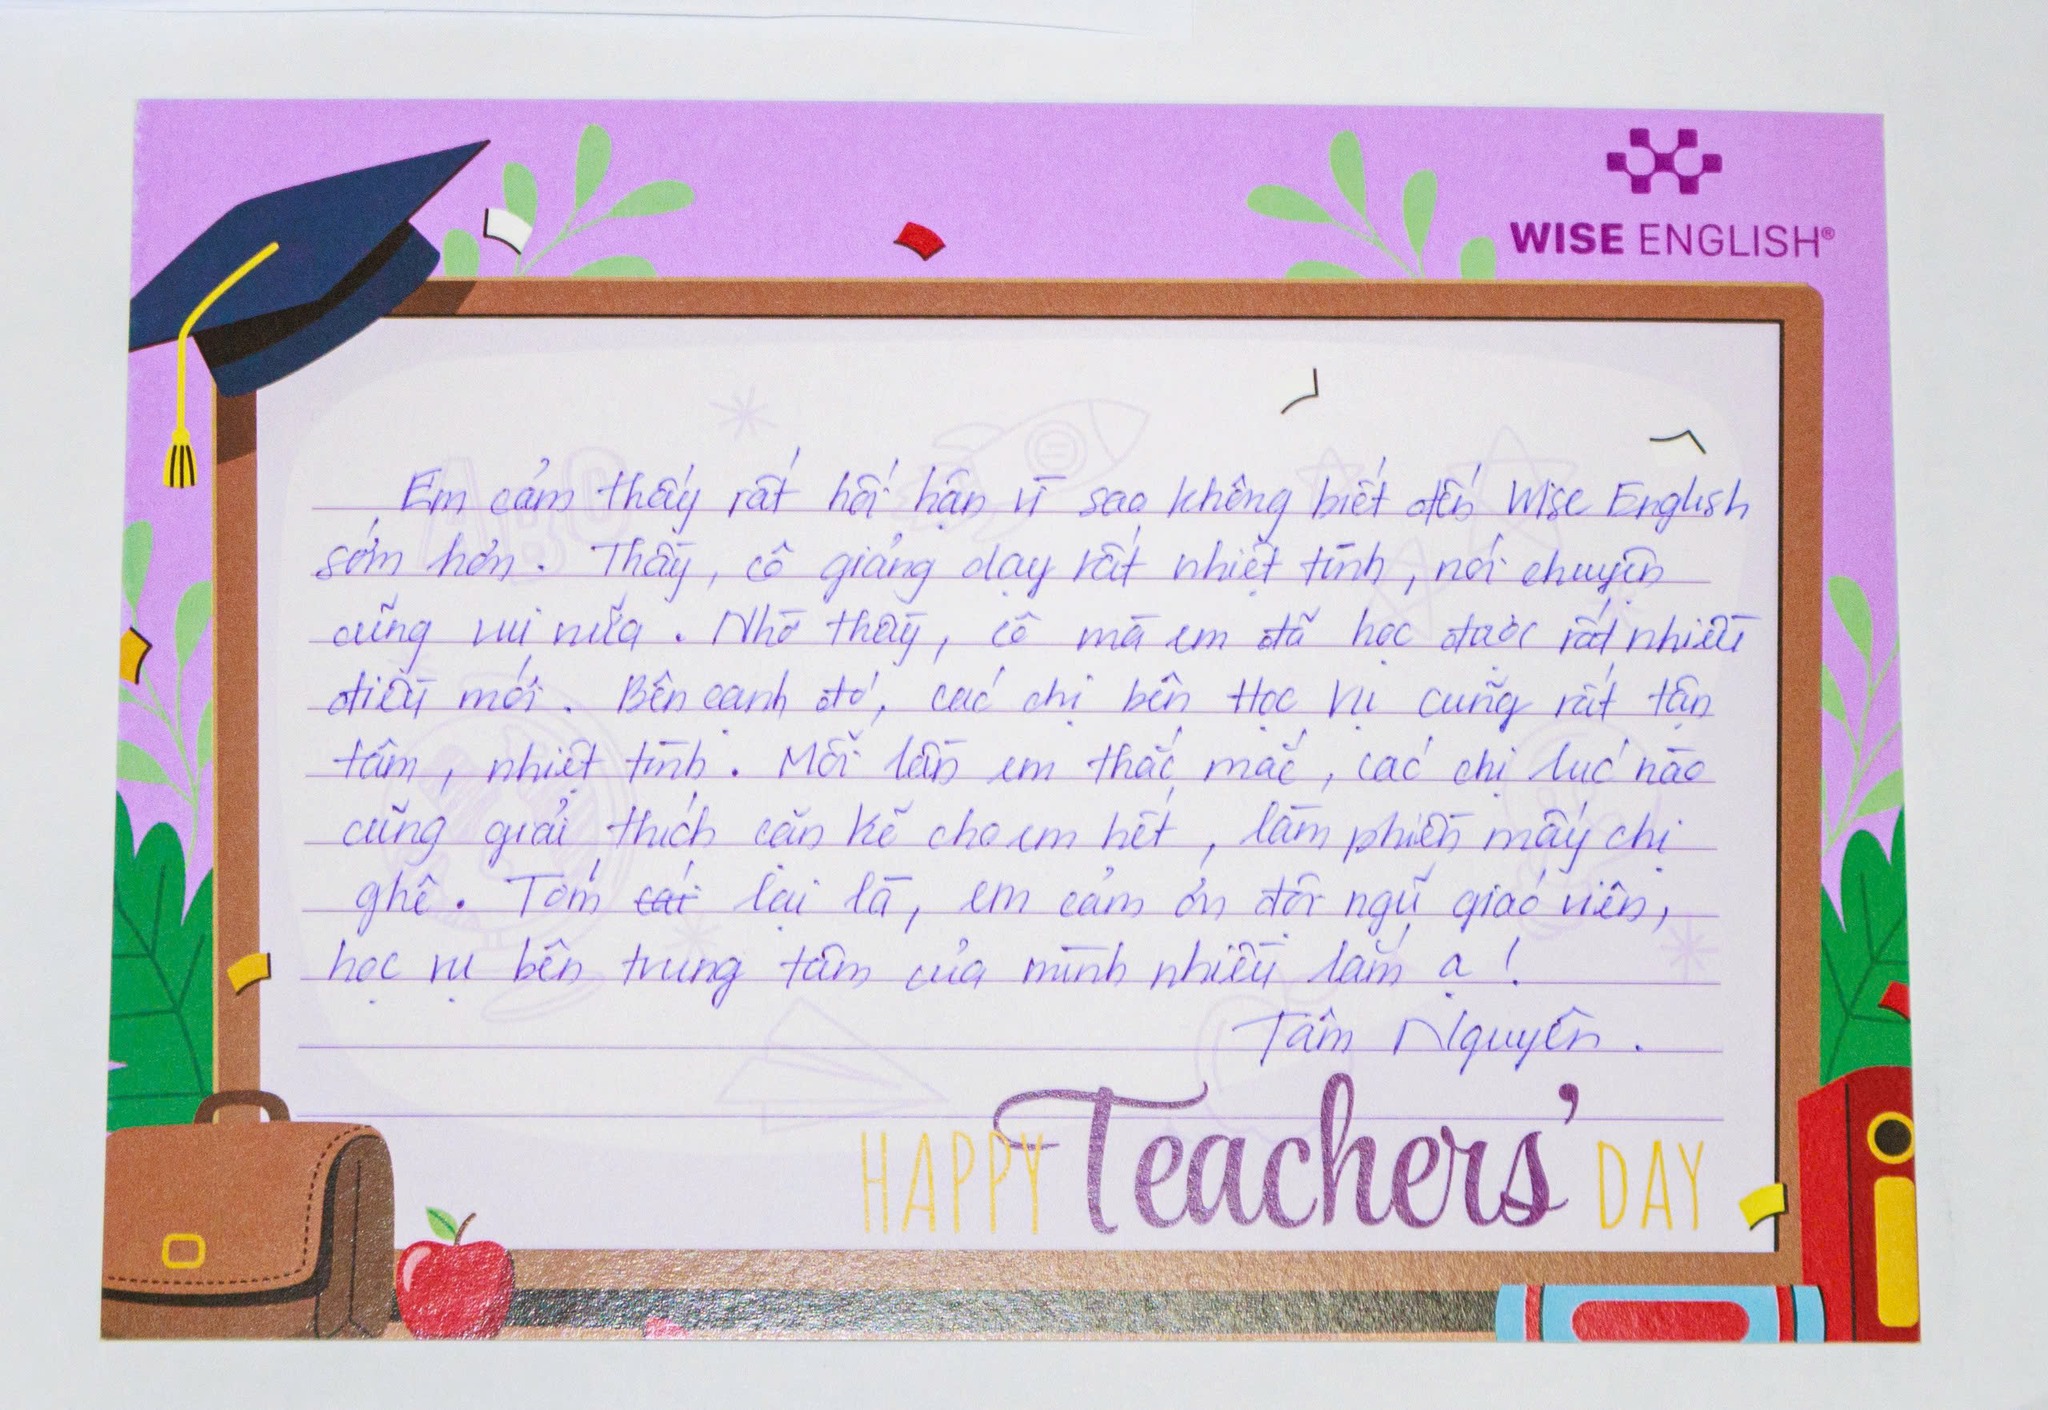 WISE ENGLISH®
Em cảm thấy rất hối hận vì sao không biết đến Wise English
sớm hơn. Thầy, cô giảng dạy rất nhiệt tình, nói chuyện
cũng vui nữa. Nhờ thầy, cô mà em đã học được rất nhiều
điều mới. Bên cạnh đó, các chị bên Học vụ cũng rất tận
tâm, nhiệt tình. Mỗi lần em thắc mắc, các chị lúc nào
cũng giải thích cặn kẽ cho em hết, làm phiền mấy chị
ghê. Tóm cái lại là, em cảm ơn đội ngũ giáo viên,
học vụ bên trung tâm của mình nhiều lắm ạ!
Tâm Nguyên.
HAPPY Teachers' DAY